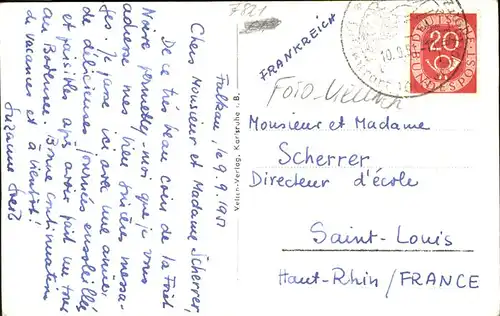 7821
FRANKREICH
Foto-
10.9.5
DEUTSCHE
BUNDESPOST
20
Falkau, le 9.9.1951
Chers Monsieur et Madame Scherrer,
De ce très beau coin de la Forêt
Noire permettez-moi que je vous
adresse mes bien sincères messa-
ges. Je passe ici avec une amie
de délicieuses journées ensoleillées
et paisibles après avoir fait un tour
au Bodensee. Bonne continuation
de vacances et à bientôt!
Suzanne
Verlag, Karlsruhe i. B.
Monsieur et Madame
Scherrer
Directeur d'école
Saint-Louis
Haut-Rhin/FRANCE